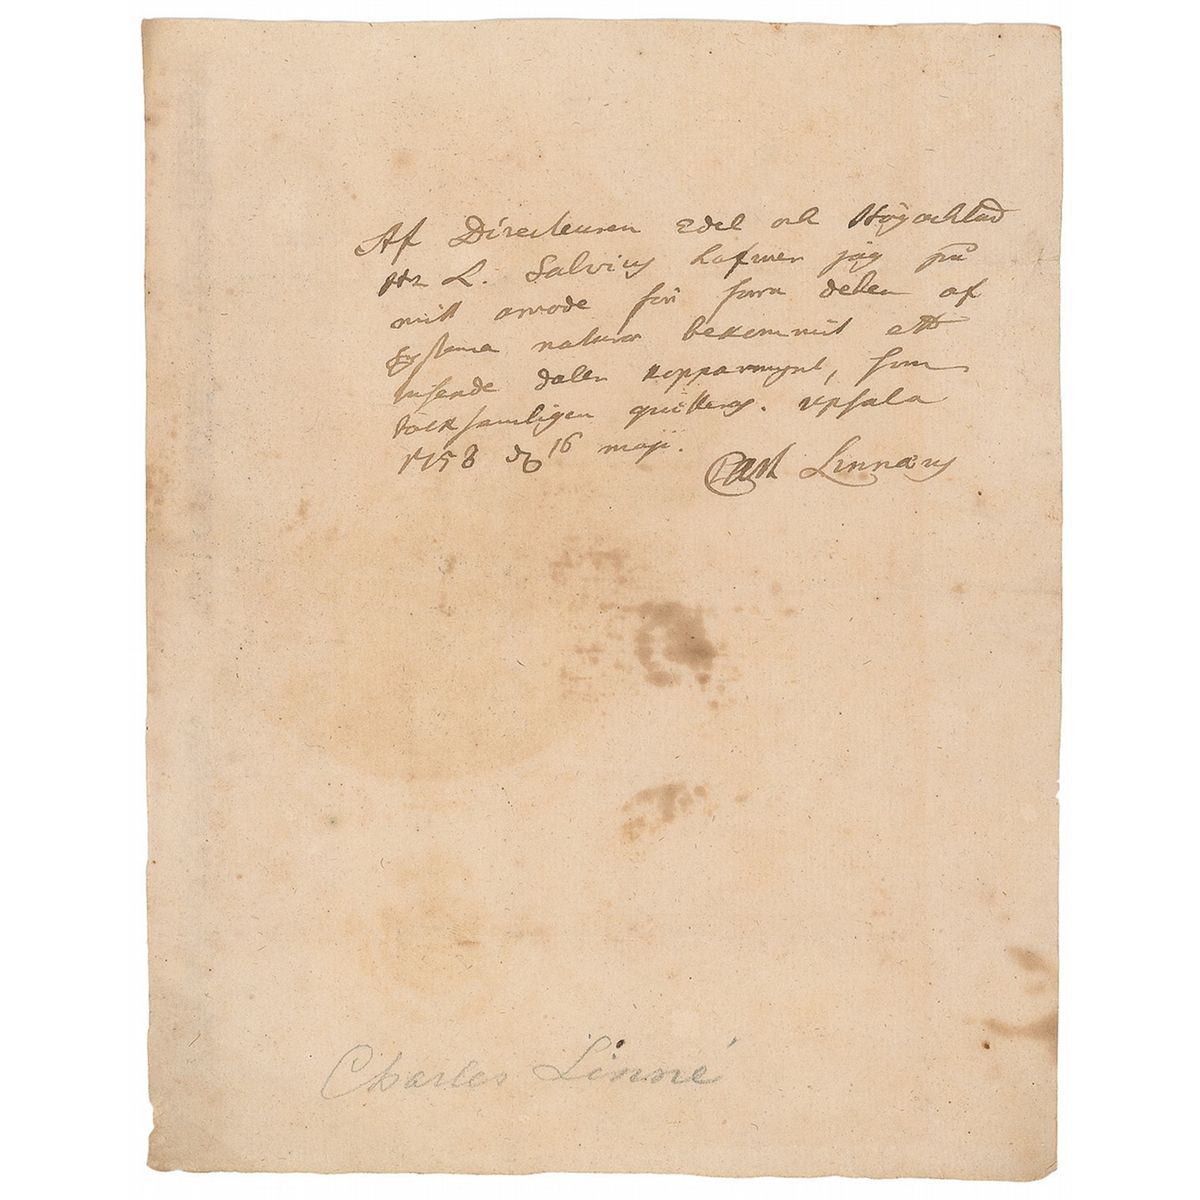 Af Directeuren Edel och Högachtad
Hr L. Salvius hafwer jag på
mitt arvode för förra delen af
Systema naturæ bekommit ett
tusende daler kopparmynt, som
tacksamligen quitteras. Upsala
1758 d. 16 maji.
Carl Linnæus
Charles Linné